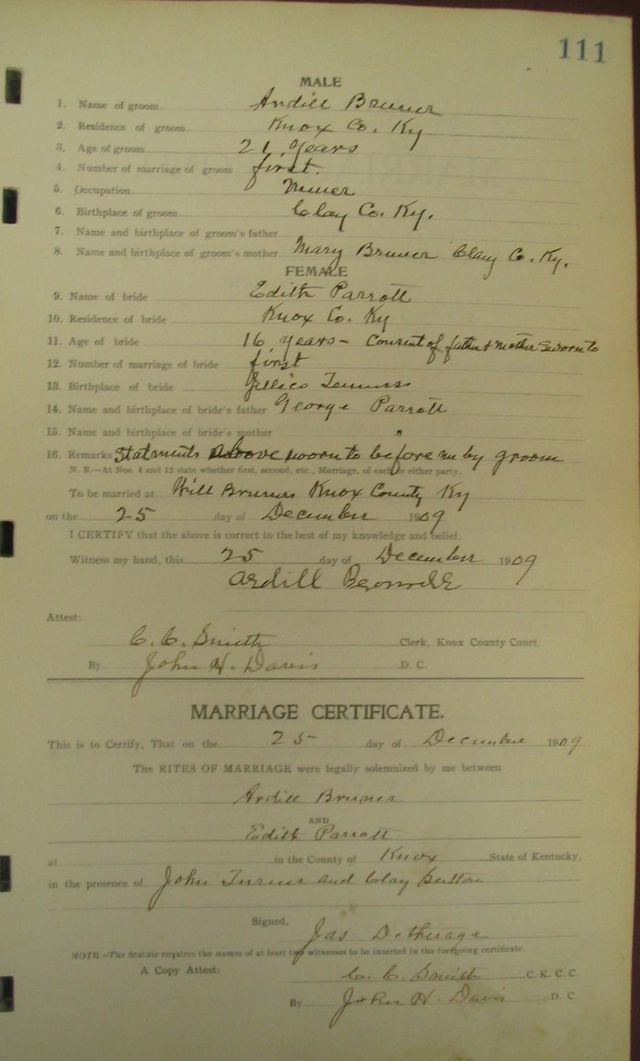 111
MALE
1. Name of groom Ardill Bruner
2. Residence of groom Knox Co. Ky
3. Age of groom 21 years
4. Number of marriage of groom first.
5. Occupation Miner
6. Birthplace of groom Clay Co. Ky.
7. Name and birthplace of groom's father
8. Name and birthplace of groom's mother Mary Bruner Clay Co. Ky.
FEMALE
9. Name of bride Edith Parrott
10. Residence of bride Knox Co. Ky
11. Age of bride 16 years - Consent of father & mother sworn to
12. Number of marriage of bride first
13. Birthplace of bride Jellico
14. Name and birthplace of bride's father George Parrott
15. Name and birthplace of bride's mother "
16. Remarks Statments above sworn to before me by groom
N. B.—At Nos. 4 and 12 state whether first, second, etc., Marriage, of each or either party.
To be married at Will Bruners Knox County Ky
on the 25 day of December 1909
I CERTIFY that the above is correct to the best of my knowledge and belief.
Witness my hand, this 25 day of December 1909
Ardill
Attest:
C. C. Smith Clerk, Knox County Court.
By John H. Davis D. C.
MARRIAGE CERTIFICATE.
This is to Certify, That on the 25 day of December 1909
The RITES OF MARRIAGE were legally solemnized by me between
Ardill Bruner
AND
Edith Parrott
at in the County of Knox State of Kentucky,
in the presence of John Turner and Clay
Signed, Jas Detherage
NOTE.—The Statute requires the names of at least two witnesses to be inserted in the foregoing certificate.
A Copy Attest: C. C. Smith C. K. C. C.
By John H. Davis D. C.